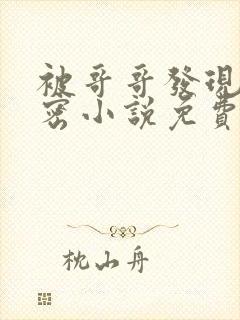 被哥哥發現
密小說免費
枕山舟